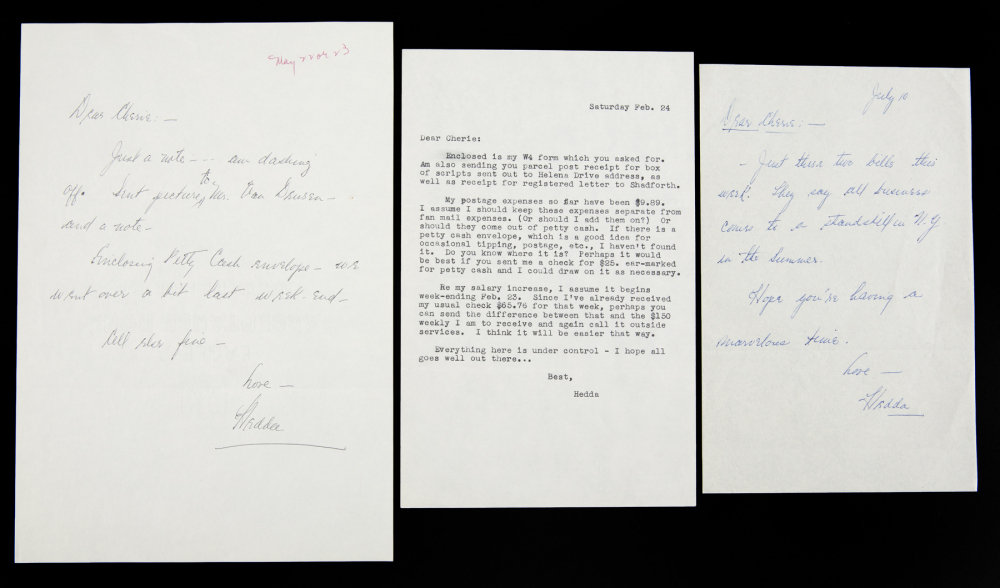 May 22 or 23
Dear Cherie: —
Just a note - - - am dashing
off. Sent picture to Mr. Van Deusen - -
and a note -
Enclosing Petty Cash envelope - we
went over a bit last week-end -
All else fine -
Love -
Hedda
Saturday Feb. 24
Dear Cherie:
Enclosed is my W4 form which you asked for.
Am also sending you parcel post receipt for box
of scripts sent out to Helena Drive address, as
well as receipt for registered letter to Shadforth.
My postage expenses so far have been $9.89.
I assume I should keep these expenses separate from
fan mail expenses. (Or should I add them on?) Or
should they come out of petty cash. If there is a
petty cash envelope, which is a good idea for
occasional tipping, postage, etc., I haven't found
it. Do you know where it is? Perhaps it would
be best if you sent me a check for $25. ear-marked
for petty cash and I could draw on it as necessary.
Re my salary increase, I assume it begins
week-ending Feb. 23. Since I've already received
my usual check $65.76 for that week, perhaps you
can send the difference between that and the $150
weekly I am to receive and again call it outside
services. I think it will be easier that way.
Everything here is under control - I hope all
goes well out there...
Best,
Hedda
July 10
Dear Cherie: —
- Just these two bills this
week. They say all business
comes to a standstill in N.Y.
in the summer.
Hope you're having a
marvelous time.
Love -
Hedda